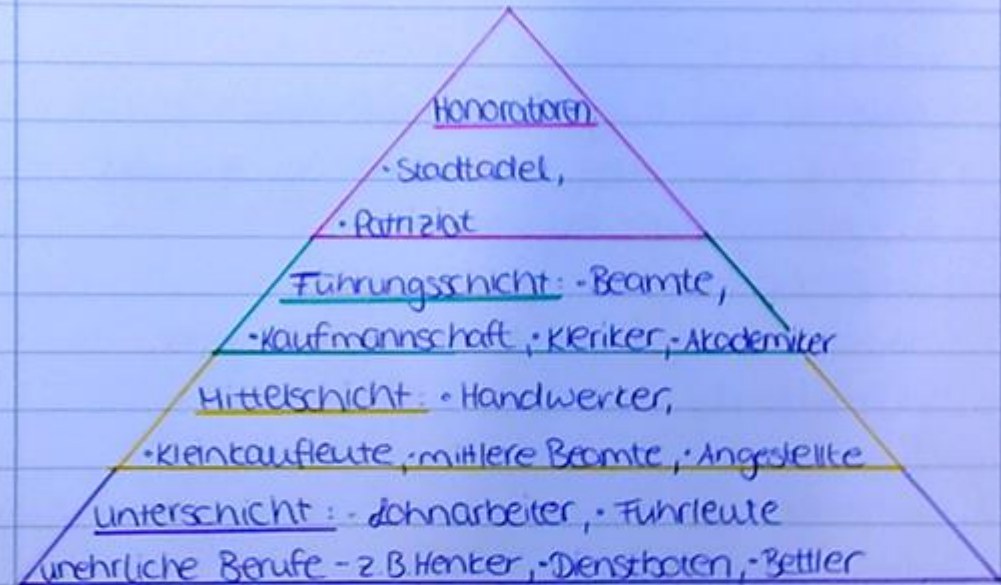 Honoratioren
· Stadtadel,
· Patriziat
Führungsschicht: · Beamte,
· Kaufmannschaft, · Kleriker, · Akademiker
Mittelschicht: · Handwerker,
· Kleinkaufleute, · mittlere Beamte, · Angestellte
Unterschicht: · Lohnarbeiter, · Fuhrleute
unehrliche Berufe - z.B. Henker, · Dienstboten, · Bettler